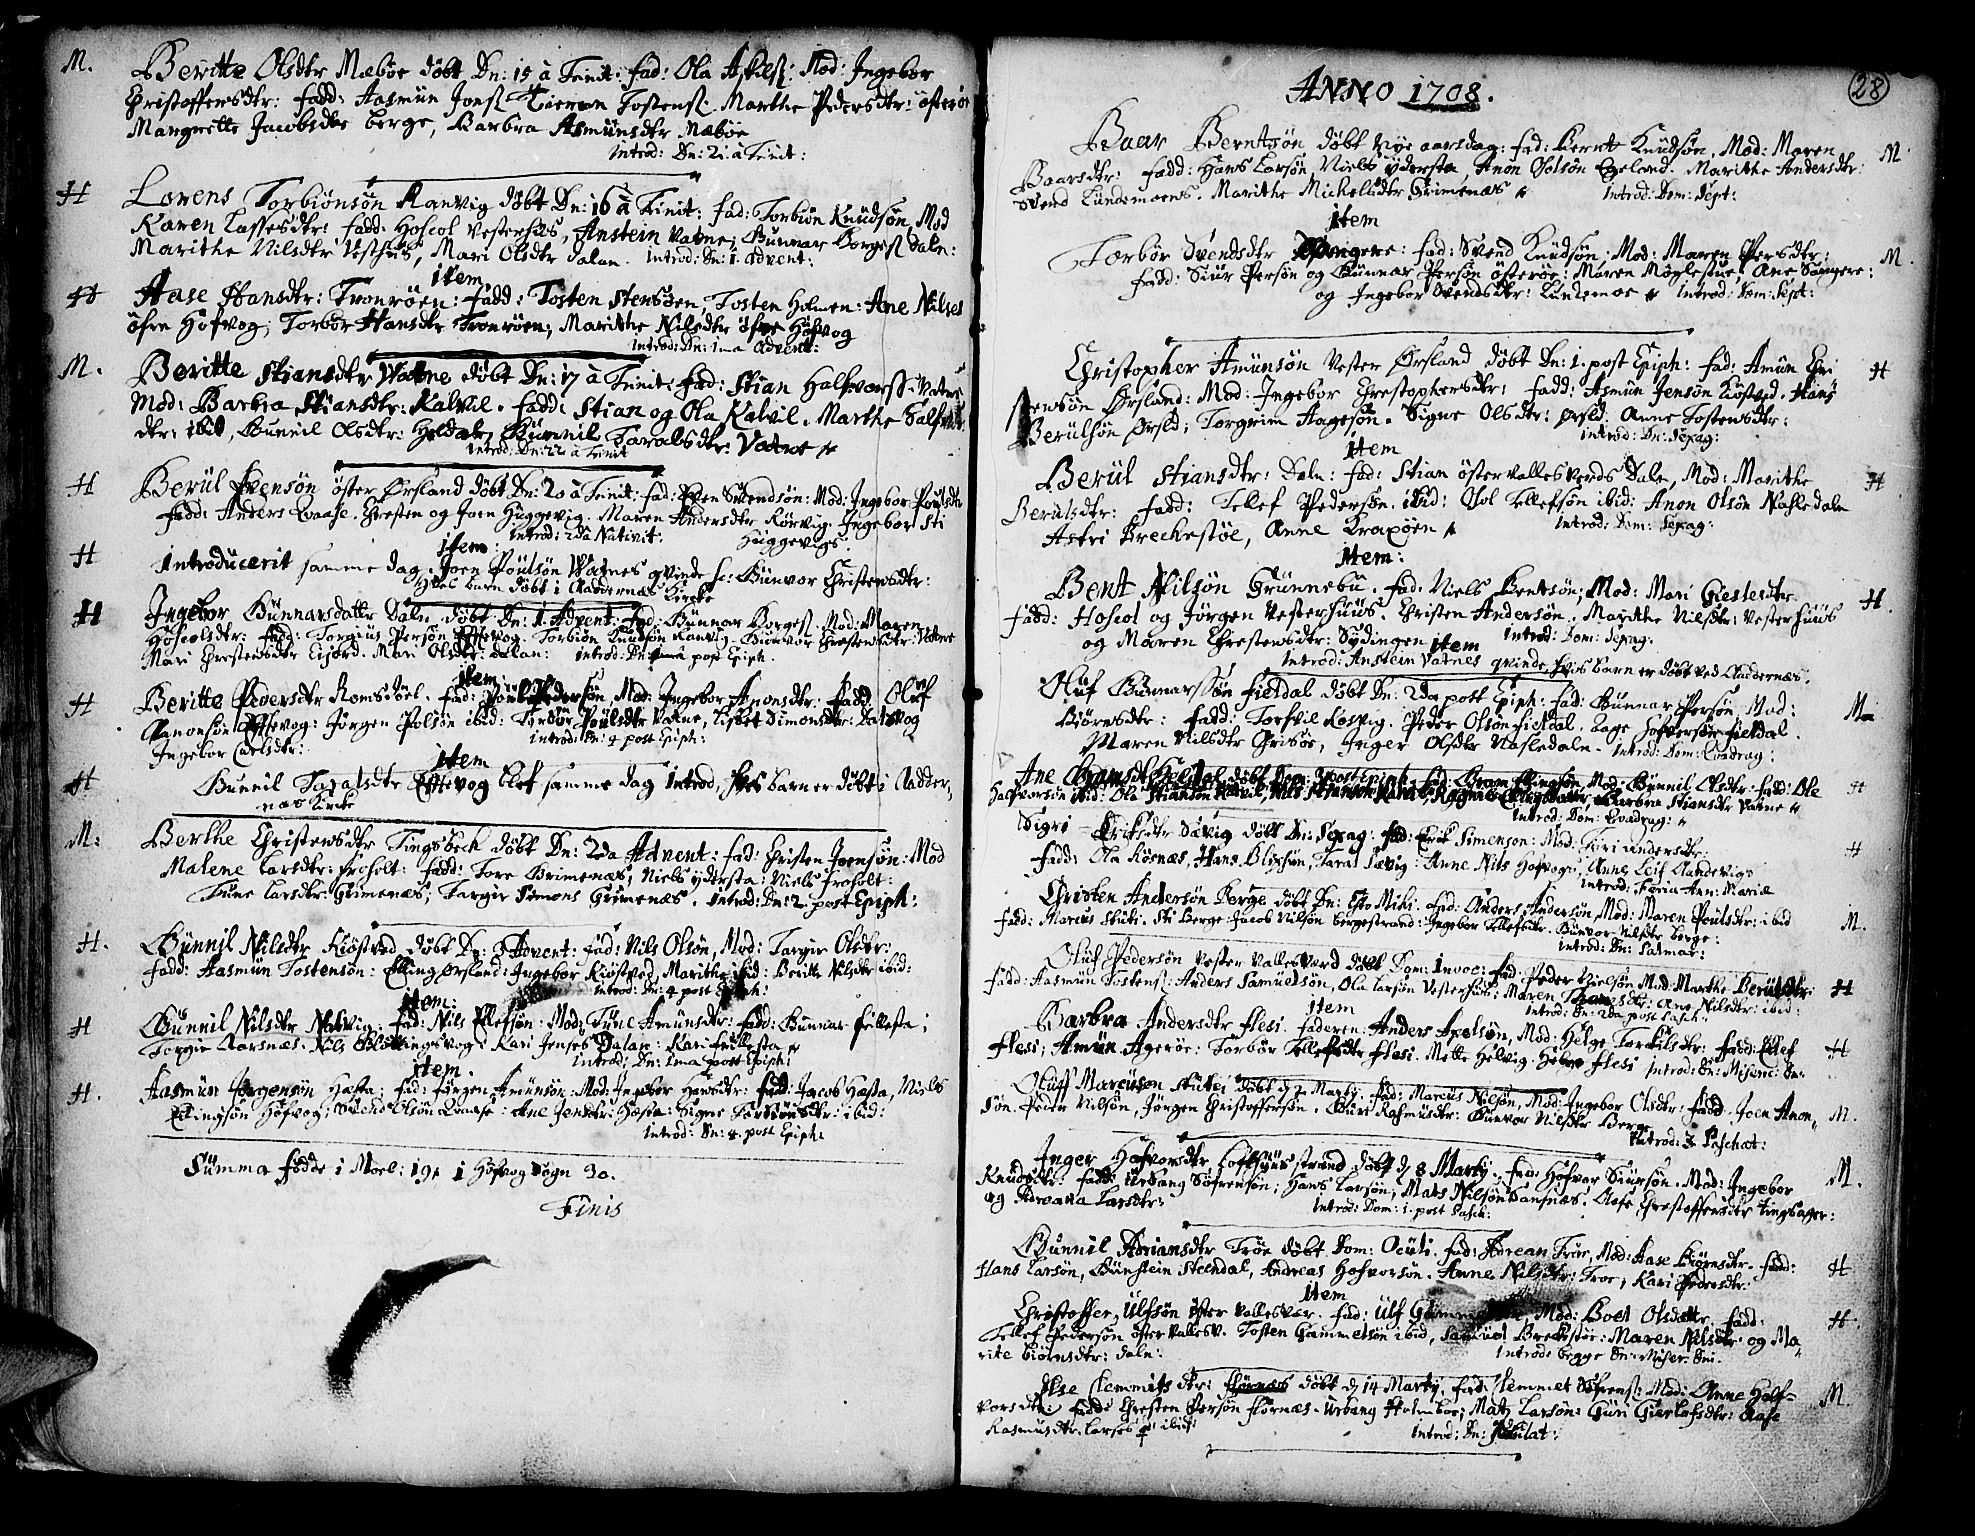 M. Beritte Olsdtr Mæbøe döbt Dn: 15 à Trinit: fad: Ola Askilss: Mod: Ingebor
Christoffersdtr: fadd: Aasmün Jonss Tieron Tostenss. Marthe Pedersdtr: österöe
Margrette Jacobsdtr berge, Barbra Asmünsdtr Mæbøe
Introd: Dn: 21 à Trinit:
H Lorens Torbiönsön Ranvig döbt Dn: 16 à Trinit: fad: Torbiön Knüdsön, Mod
Karen Lassesdtr: fadd: Hoscol Vesterhus, Anstein Vatne; Gunnar Borgess Daln:
Marithe Nilsdtr Vesthus, Mari Olsdtr Dalan. Introd: Dn: 1. Advent:
item
H Aase Hansdtr: Tronröen: fadd: Tosten Stensöen, Tosten Holmen: Ane Nilses
öfre Höfvog; Torbor Hansdtr Tronröen; Marithe Nilsdtr öfre Höfvog
Introd: Dn: 1ma Advent:
M. Beritte Stiansdtr Vatne döbt Dn: 17 à Trinit: fad: Stian Halfvorss: Vatne
Mod: Barbra Stiansdtr: Kalvil. fadd: Stian og Ola Kalvil. Marthe Halfvor
dtr: ibid, Gunnil Olsdtr: Heldal, Gunnil Taralsdtr: Vatne
Introd: Dn: 22 à Trinit
H Berül Evensön öster Örsland döbt Dn: 20 à Trinit: fad: Even Svendsön: Mod: Ingebor Poulsdtr
fadd: Anders Qvaase. Christen og Joen Huggevig. Maren Andersdtr Körvig. Ingebor Sti
Introd: 2da Nativit: Huggevigs.
item
H Introducerit samme dag. Joen Poulsön Vatnes qvinde hc: Gunvor Christensdtr:
Hves barn döbt i Claddernæs Kircke
H Ingebor Gunnarsdatter Daln. döbt Dn: 1 Advent: fad: Gunnar Borgess. Mod: Maren
Hoscolsdtr: fadd: Torgius Persön Eftevog. Torbiön Knudsön Ranvig. Gunvor Christensdtr: Vatne
Mari Christensdtr Eisord. Mari Olsdtr: dalan: introd: Dn 1ma post Epiph.
item
H Beritte Pedersdtr Romsdöel. fad: Poul Pedersön, Mod: Ingebor Anonsdtr: fadd Oluf
Canonsön Eftevog: Jörgen Polsön ibid: Torbor Poulsdtr Vatne, Lisbet Simonsdtr: Dalsvog
Ingebor Carlsdtr: introd: Dn: 4 post Epiph:
item
H Gunnil Taralsdtr Eftevog blef samme dag Introd, hves barn er döbt i Cladder,
næs Kircke
M: Berthe Christensdtr Tingsbeck döbt Dn: 2da Advent: fad: Christen Joensön: Mod
Malene Larsdtr: Froholt: fadd: Tore Grimenæs; Niels ydersta: Niels Froholt:
Tune Larsdtr: Grimenæs; Targier Simons Grimenæs. Introd: Dn: 2. post Epiph:
H. Gunnil Nilsdtr Kiöstved döbt Dn: 3 Advent: fad: Nils Olsön, Mod: Targier Olsdtr:
fadd: Aasmün Tostensön: Elling Örsland: Ingebor Kiöstved, Marithe ibid: Beritte Nilsdtr ibid:
Introd: Dn: 4 post Epiph:
item:
H Gunnil Nilsdtr Nalvig. fad: Nils Ellefsön: Mod: Tune Amünsdtr: fadd: Gunnar frillesta;
Torgier Aarsnæs. Nils Blollingsvog: Kari Jenses Dalan: Kari frillesta
Introd: Dn: 1ma post Epiph:
item.
H. Aasmün Jörgensön Hæsta: fad: Jörgen Amünsön: Mod: Ingebor Hansdtr: fadd: Jacob Hæsta, Niels
Ellingsön Höfvog; Svend Olsön Qvaase: Ane Jensdtr: Hæsta: Signe Torbiönsdtr: ibid:
Introd: Dn: 4. post Epiph:
Summa födde i Moel: 19. i Höfvog Sogn 30.
Finis
28
ANNO 1708.
Baar Berntsön döbt Nye aarsdag: fad: Bernt Knudsön, Mod: Maren M
Baarsdtr: fadd: Hans Larsön, Niels ydersta, Anon Jolsön Egeland. Marithe Andersdtr:
Svend Lundemoens. Marithe Mickelsdtr Grimenæs Introd: Dom: Sept:
item
Torbor Svendsdtr Spangere: fad: Svend Knudsön. Mod: Maren Persdtr: M.
fadd: Siur Persön og Gunnar Persön österöe: Maren Möglestue. Ane Sangere:
og Ingebor Svendsdtr: Lundemoe Introd: Dom: Sept:
Christopher Amunsön Vester Örsland döbt Dn: 1. post Epiph: fad: Amün Chri H
stensön Örsland: Mod: Ingebor Christophersdtr: fadd: Asmün Jensön Kiöstved. Hans
Berülsön Örsld; Torgrim Aagesön. Signe Olsdtr: örsld: Anne Tostensdtr:
introd: Dn: Sexag:
item
Berül Stiansdtr: Daln: fad: Stian östervallesverds Daln, Mod: Marithe H
Berülsdtr: fadd: Tellef Pedersön ibid: Jol Tellefsön ibid: Anon Olsön Nasledaln
Astri Breckestöe, Anne Traxöen Introd: Dom: Sexag:
item:
Bent Nilsön Grünnebü. fad: Niels Bentsön; Mod: Mari Giestesdtr H.
fadd: Hoscol og Jörgen Vesterhuus. Christen Andersön. Marithe Nilsdtr: Vesterhuus
og Maren Christensdtr: Sydingen Introd: Dom: Sexag:
item
Introd: Anstein Vatnes qvinde hves barn er döbt ved Claddernæs.
Oluf Gunnarssön Fieldal döbt Dn: 2da post Epiph: fad: Gunnar Persön Mod: M.
Biörnsdtr: fadd: Torkil Rosvig. Peder Olsön Fieldal. Aage Halfvorsön Fieldal.
Maren Nilsdtr Grisöe, Inger Olsdtr Nasledaln. Introd: Dom: Qvadrag:
Ane Gramsdtr Heldal döbt Dom: 3 post Epiph. fad: Gram Ellingsön, Mod: Gunnil Olsdtr: fadd: Ole H
Halfvorsön ibid: Ola Stiansön Kalvil, Nils Stiansön Vatne, Ragnil Ellingsdatter, Barbra Stiansdtr Vatne
Introd: Dom: Qvadrag:
Sigri Eriksdtr Sævig döbt Dn: Sexag: fad: Erick Simensön: Mod: Tori Andersdtr: H
fadd: Ola Rosnæs, Hans Blixsön, Taral Sævig: Anne Nils Höfvogs, Anne Leif Aandevigs
Introd: Feria Ann: Mariæ
Christen Andersön Berge döbt Dn: Esto Mihi. fad: Anders Andersön, Mod: Maren Poulsdtr: ibid
fadd: Marcus Stubi. Sti Berge: Jacob Nilsön bergestrand: Ingebor Tellefsdtr: Gunvor Nilsdtr Berge: M.
Introd: Dn: Palmar:
Oluf Pedersön Vester Vallesverd döbt Dom: Invoc: fad: Peder Nielsön Mod: Marthe Berülsdtr: H
fadd: Aasmün Tostens: Anders Samuelsön, Ola Larsön Vesterhus: Maren Thomesdtr: Ane Nilsdtr: ibid:
Introd: Dn: 2da post Pasch:
item
Barbra Andersdtr Flesi. faderen: Anders Axelsön, Mod: Helge Torkilsdtr: fadd: Ellef H
Flesi; Amün Agerøe: Torbor Tellefsdtr Flesi. Mette Helvig. Helge Flesi Introd: Dn: Miseric: Dn:
Oluff Marcusön Stubei döbt d 2 Marty. fad: Marcus Nilsön, Mod: Ingebor Olsdtr: fadd: Joen Anon,
sön. Peder Nilsön, Jörgen Christoffersön. Gúri Rasmusdtr: Gunvor Nilsdtr Berge. M.
Introd: 3 Paschat:
Inger Halfvorsdtr Loftshusstrand döbt d 8 Marty. fad: Halfvor Siursön. Mod: Ingebor M.
Knudsdtr: fadd: Urbang Söfrensön; Hans Larsön; Mats Nilsön Dansnæs. Aase Christoffersdtr Tingsager:
og Adreana Larsdtr: Introd: Dom: 1. post Pasch:
Gunnil Adriansdtr Tröe döbt Dom: Oculi. fad: Adrean Tröe, Mod: Aase Biörnsdtr. fadd: H
Hans Larsön, Gunstein Steendal, Andreas Halfvorsön. Anne Nilsdtr: Troe, Kari Pedersdtr:
item
Christoffer Ulfsön öster Vallesver. fad: Ulf Mod: Boel Olsdatter. fadd: H.
Tellef Pedersön östervallesv. Tosten Gammelsön ibid, Samuel Breckstöe: Maren Nilsdtr og Ma,
rite Biörnsdtr: daln: Introd: begge Dn: Miser: Dni.
Else Clemmitsdtr: Flörnæs döbt d 14 Marty. fad: Clemmet Söfrens: Mod: Anne Half= M.
vorsdtr: fadd: Christen Persön Flörnæs. Urbang Holmboe; Mats Larsön: Guri Gierlofsdtr: Aase
Rasmusdtr. Larses ibid: Introd: Dn: Jubilat: